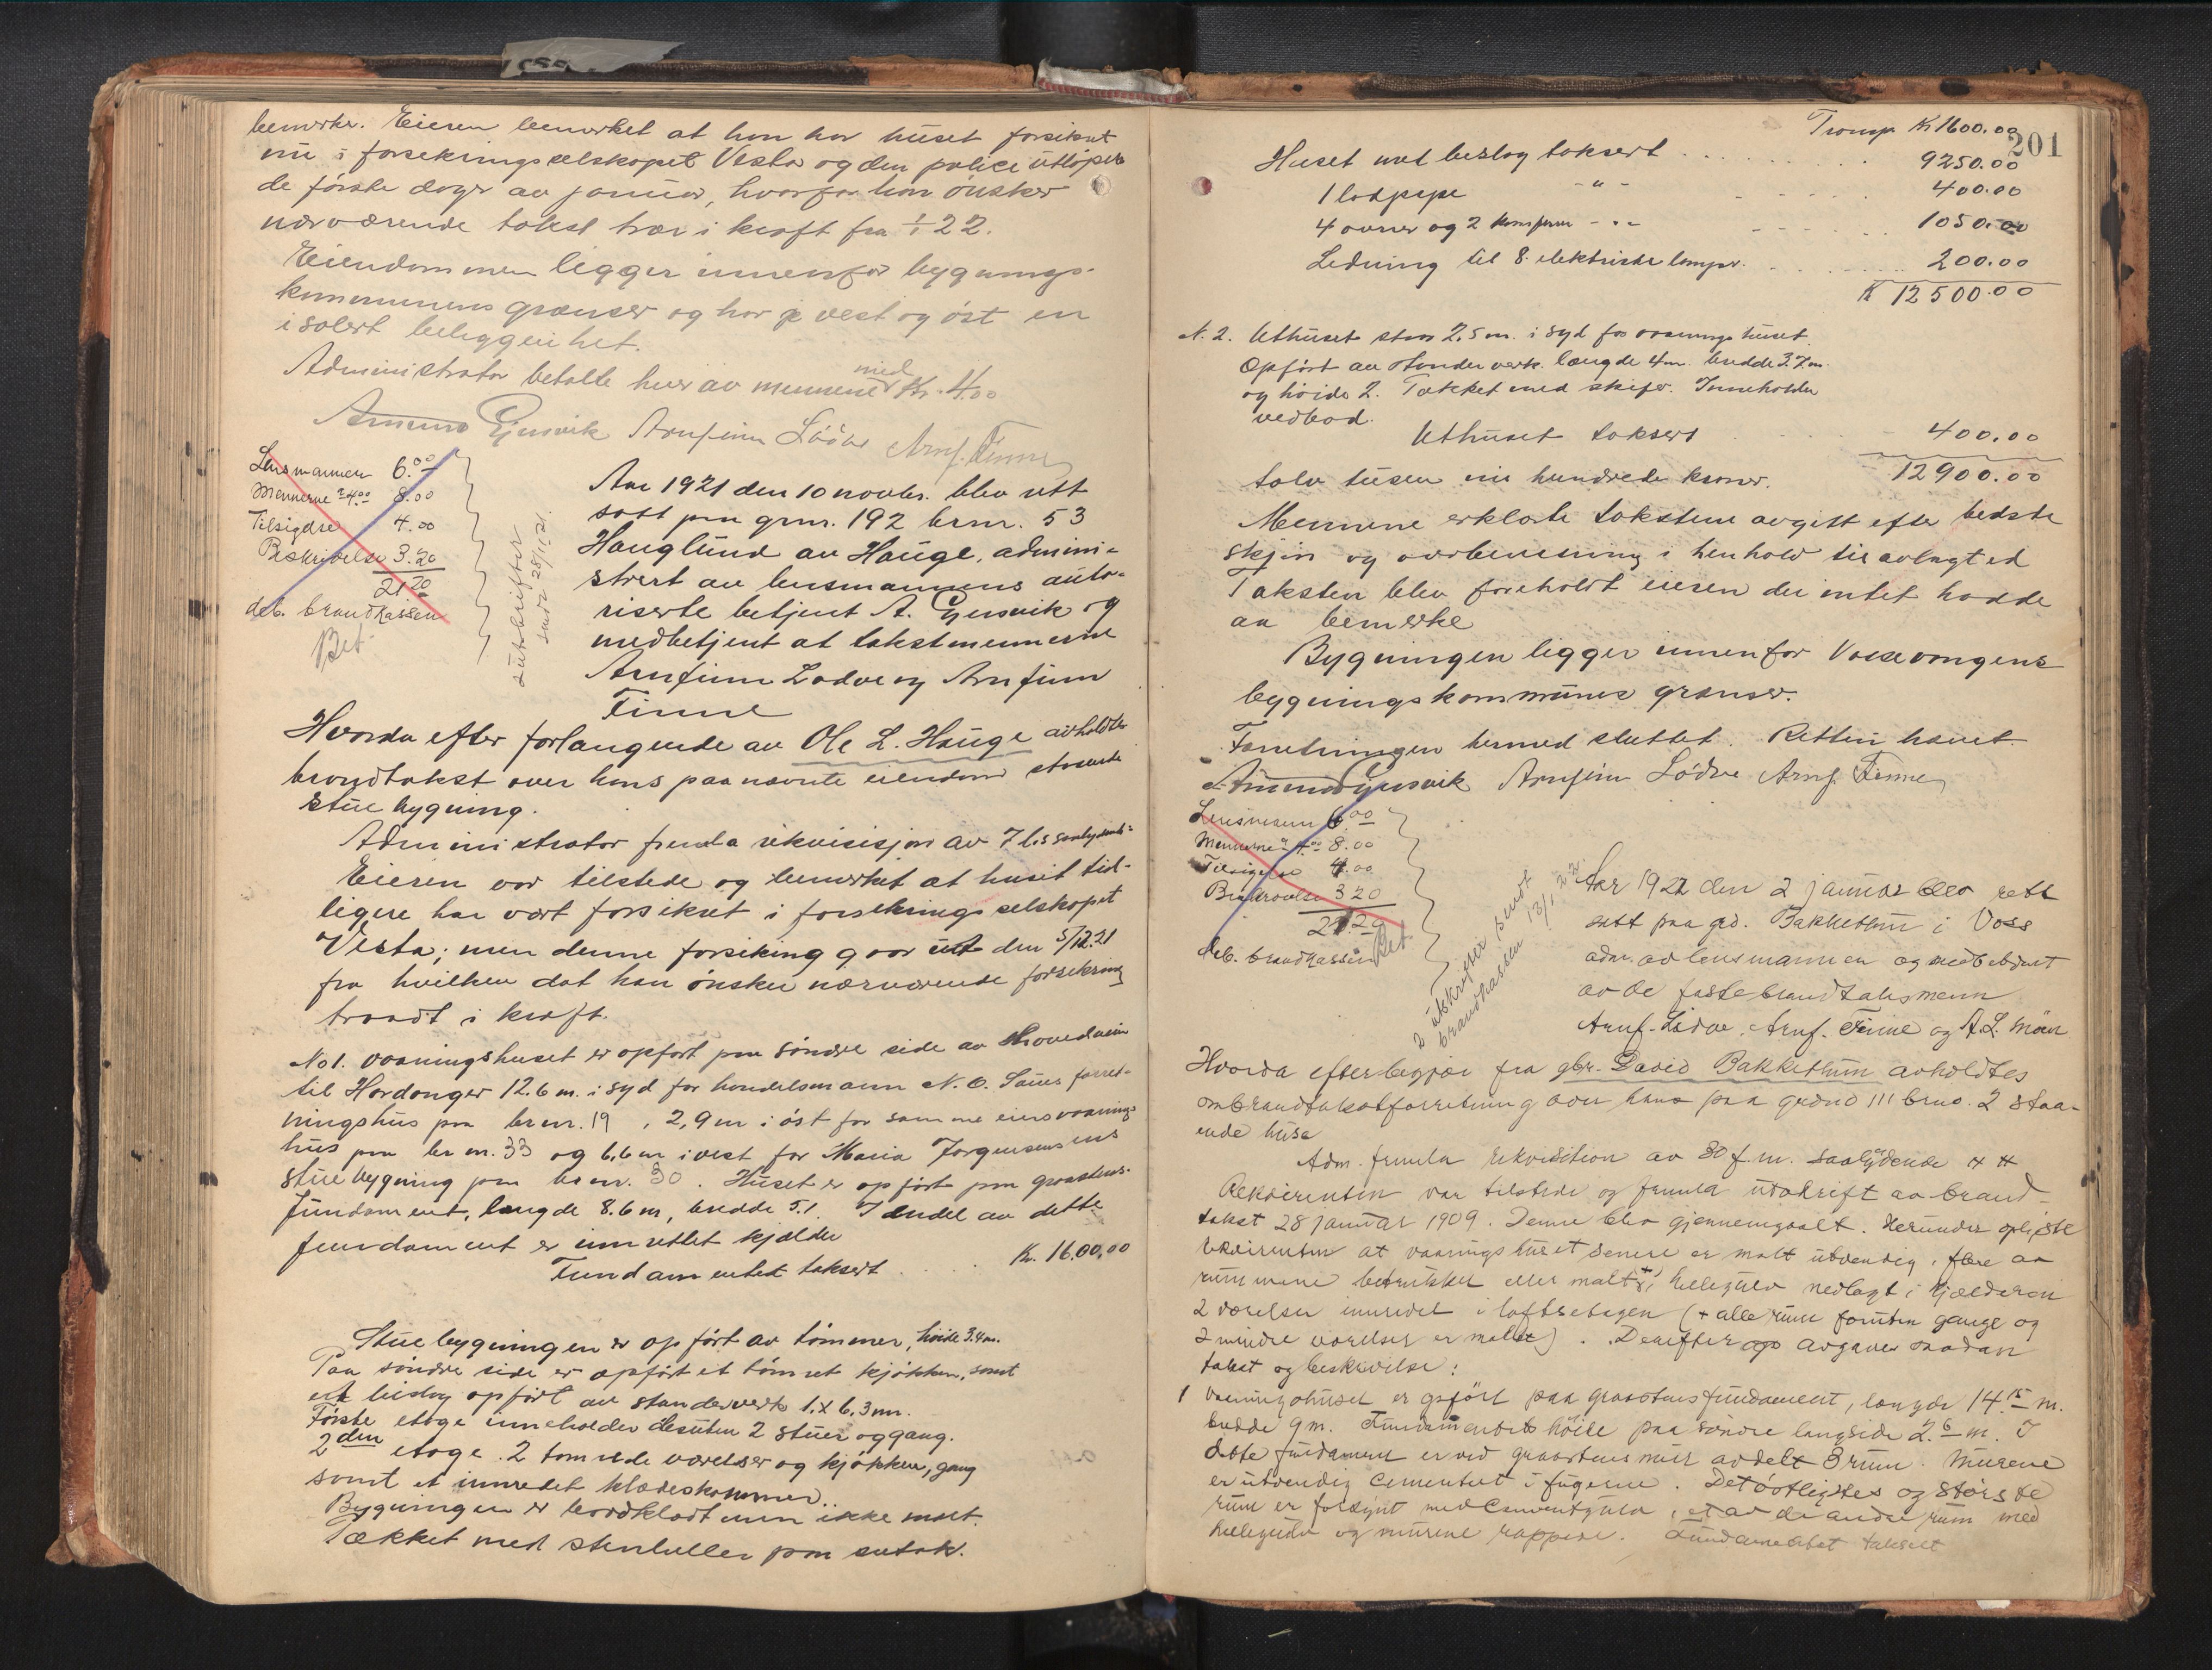 bemerke. Eieren bemerket at hun har huset forsikret
nu i forsekringsselskapet Vesta og den police utløper
de første dager av januar, hvorfor hun ønsker
nærværende takst træ i kraft fra 1/1 22.
Eiendommen ligger innenfor bygnings-
kommunens grænser og har i vest og øst en
isolert beliggenhet.
Administrator betalte hver av mennene med Kr. 4.00
Amund Gjersvik Arnfinn Lødve Arnf. Finne
Lensmannen 6.00
Mennerne a 4.00 8.00
Tilsigelse 4.00
Beskrivelse 3.20
21.20
deb. brandkassen
Bet.
2 utskrifter
sendt 28/11 21.
Aar 1921 den 10 novbr. blev rett
satt paa grnr. 192 brnr. 53
Hauglund av Hauge, admini-
strert av lensmannens auto-
riserte betjent A. Gjersvik og
medbetjent at takstmennerne
Arnfinn Lødve og Arnfinn
Finne
Hvorda efter forlangende av Ole L. Hauge avholdtes
brandtakst over hans paa nævnte eiendom staaende
stuebygning.
Administrator fremla rekvisisjon av 7 ds saalydende:
Eieren var tilstede og bemerket at huset tid-
ligere har vært forsikret i forsekringsselskapet
Vesta; men denne forsikring gaar ut den 5/12.21
fra hvilken dat han ønsker nærværende forsekring
traadt i kraft.
No 1. vaaningshuset er opført paa søndre side av hovedveien
til Hardanger 12.6 m. i syd for handelsmann N. O. Saues forret-
ningshus paa brnr. 19, 2,9 m i øst for samme eiers vaanings
hus paa brnr. 33 og 6,6 m i vest for Maria Jørgensens
stuebygning paa brnr. 30. Huset er opført paa graastens-
fundament, længde 8.6 m, bredde 5.1. I endel av dette
fundament er innrettet kjælder
Fundamentet taksert . . . Kr. 1600,00
Stuebygningen er opført av tømmer, høide 3.4 m.
Paa søndre side er opført et tømret kjøkken, samt
et bislag opført av standerverk 1. x 6,3 m.
Første etage inneholder desuten 2 stuer og gang.
2den etage. 2 tømrede værelser og kjøkken, gang
samt et innredet klædeskammer.
Bygningen er bordklædt men ikke malt.
Tækket med stenheller paa sutak.
201
Transp. Kr 1600.00
Huset med beslag taksert . . . . . . 9250.00
1 lodpipe - " - 400.00
4 ovner og 2 komfurer - " - 1050.00
Ledning til 8 elektriske lamper. . . . 200.00
Kr 12500.00
N. 2. Uthuset staar 2,5 m. i syd for vaaningshuset.
Opført av standerverk. længde 4 m. bredde 3.7 m.
og høide 2. Tækket med skifer. Inneholder
vedbod.
Uthuset taksert 400.00
tolv tusen ni hundrede kroner. 12900.00
Mennene erklærte takstene avgitt efter bedste
skjøn og overbevisning i henhold til avlagt ed
Taksten blev foreholdt eieren der intet hadde
aa bemerke
Bygningen ligger innenfor Vossevangens
bygningskommunes grænser.
Forretningen hermed sluttet. Retten hævet.
Amund Gjersvik Arnfinn Lødve Arnf. Finne
Lensmann 6.00
Mennerne a 4.00 8.00
Tilsigelse 4.00
Beskrivelse 3 20
21.20
deb. brandkassen
Bet.
2 utskrifter sendt
brandkassen 13/1 22.
Aar 1922 den 2 januar blev rett
satt paa grd. Bakketun i Voss
adm. av lensmannen og medbetjent
av de faste brandtakstmenn
Arnf. Lødve, Arnf. Finne og A. L. Møn
Hvorda efter begjær fra gbr. David Bakkethun avholdtes
ombrandtakstforretning over hans paa grdno 111 brno. 2 staa-
ende huse
Adm. fremla rekvisition av 30 f.m. saalydende ## 
Rekvirenten var tilstede og fremla utskrift av brand-
takst 28 januar 1909. Denne blev gjennemgaalt. Herunder oplyste
rekvirenten at vaaningshuset senere er malt utvendig, flere av
rummene betrukket eller malt, hellegulv nedlagt i kjælderen
2 værelser innredet i loftsetagen (+ alle rum foruten gange og
2 mindre værelser er malet). Derefter avgaves saadan
takst og beskrivelse:
1 Vaaningshuset er opført paa graastensfundament, længde 14.15 m.
bredde 9 m. Fundamentets høide paa søndre langside 2.6 m. I
dette fundament er ved graastensmur avdelt 3 rum. Murene
er utvendig cementert i fugerne. Det østligstes og største
rum er forsynt med cementgulv, et av de andre rum med
hellegulv og murene rappede. Fundamentet taksert